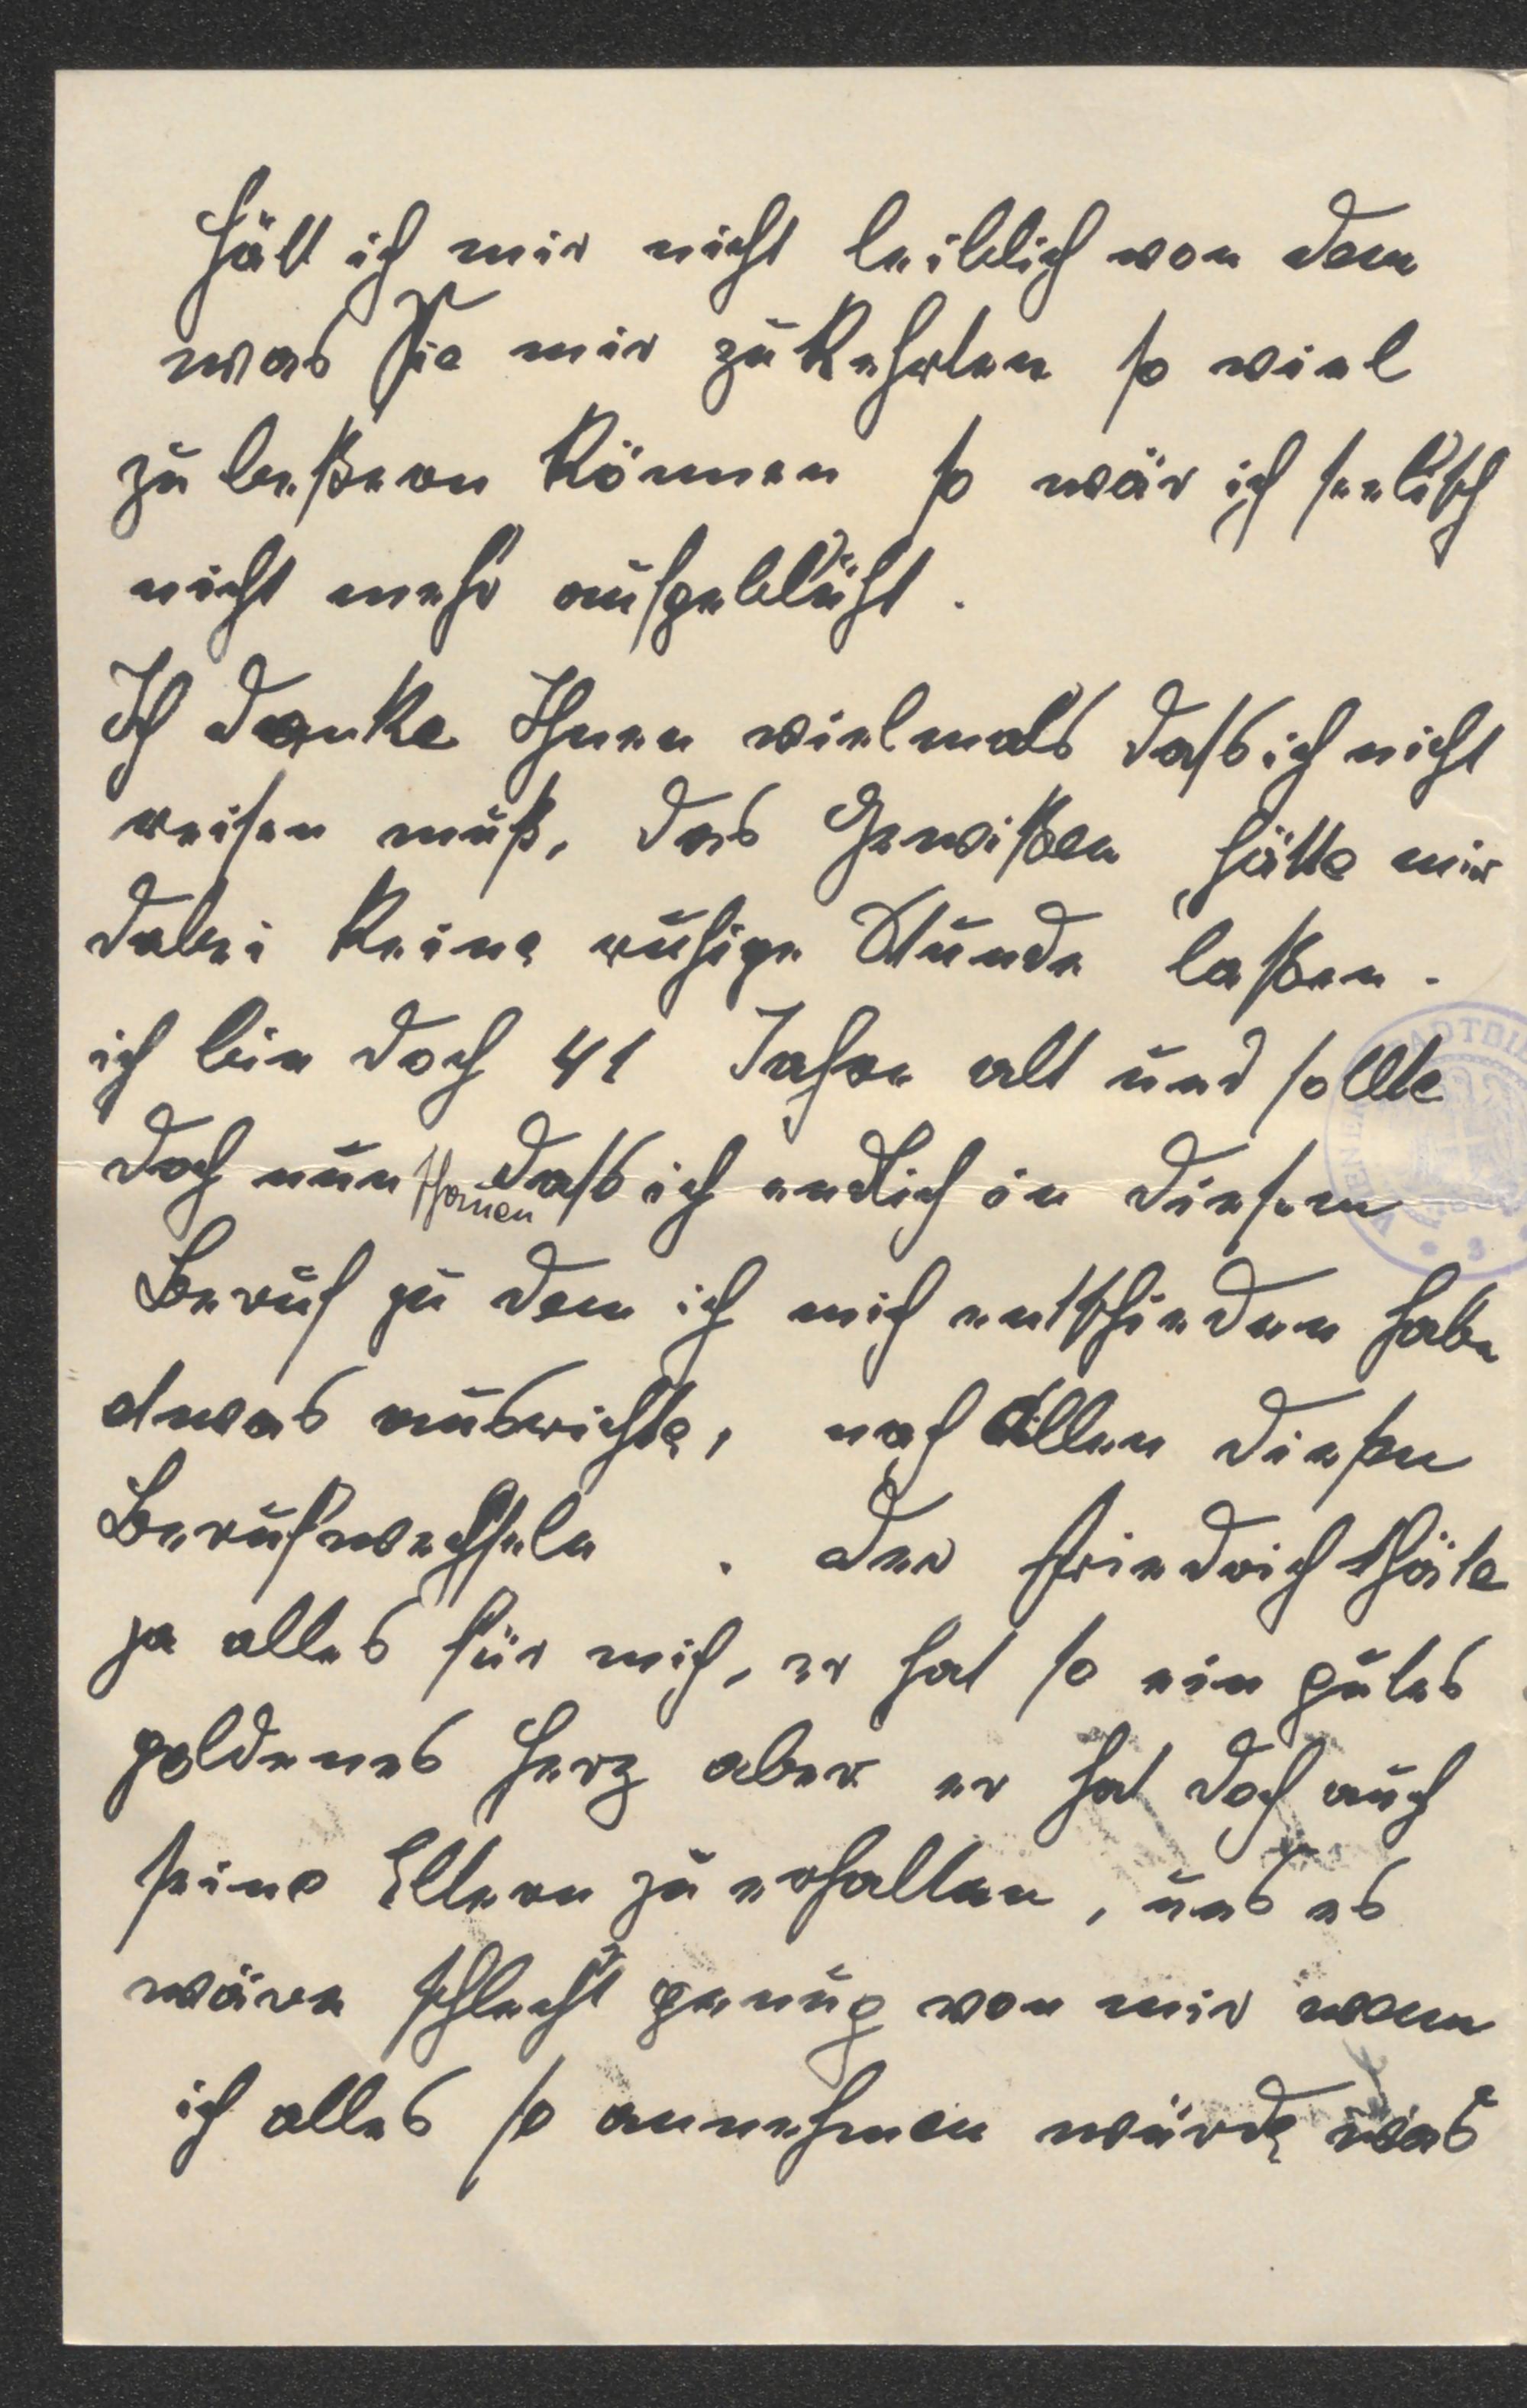 hätt ich mir nicht leiblich von dem
was Sie mir zukehrten so viel
zu beßern können so wär ich seelisch
nicht mehr aufgeblüht.
Ich danke Ihnen vielmals dass ich nicht
reisen muß, das Gewißen hätte mir
dabei keine ruhige Stunde laßen.
ich bin doch 41 Jahre alt und sollte
doch nun schauen dass ich endlich in diesem
Beruf zu dem ich mich entschieden habe
etwas ausrichte, nach allen diesen
Berufswechseln. der Friedrich thäte
ja alles für mich, er hat so ein gutes
goldenes Herz aber er hat doch auch
seine Eltern zu erhalten, und es
wäre schlecht genug von mir wenn
ich alles so annehmen würde was